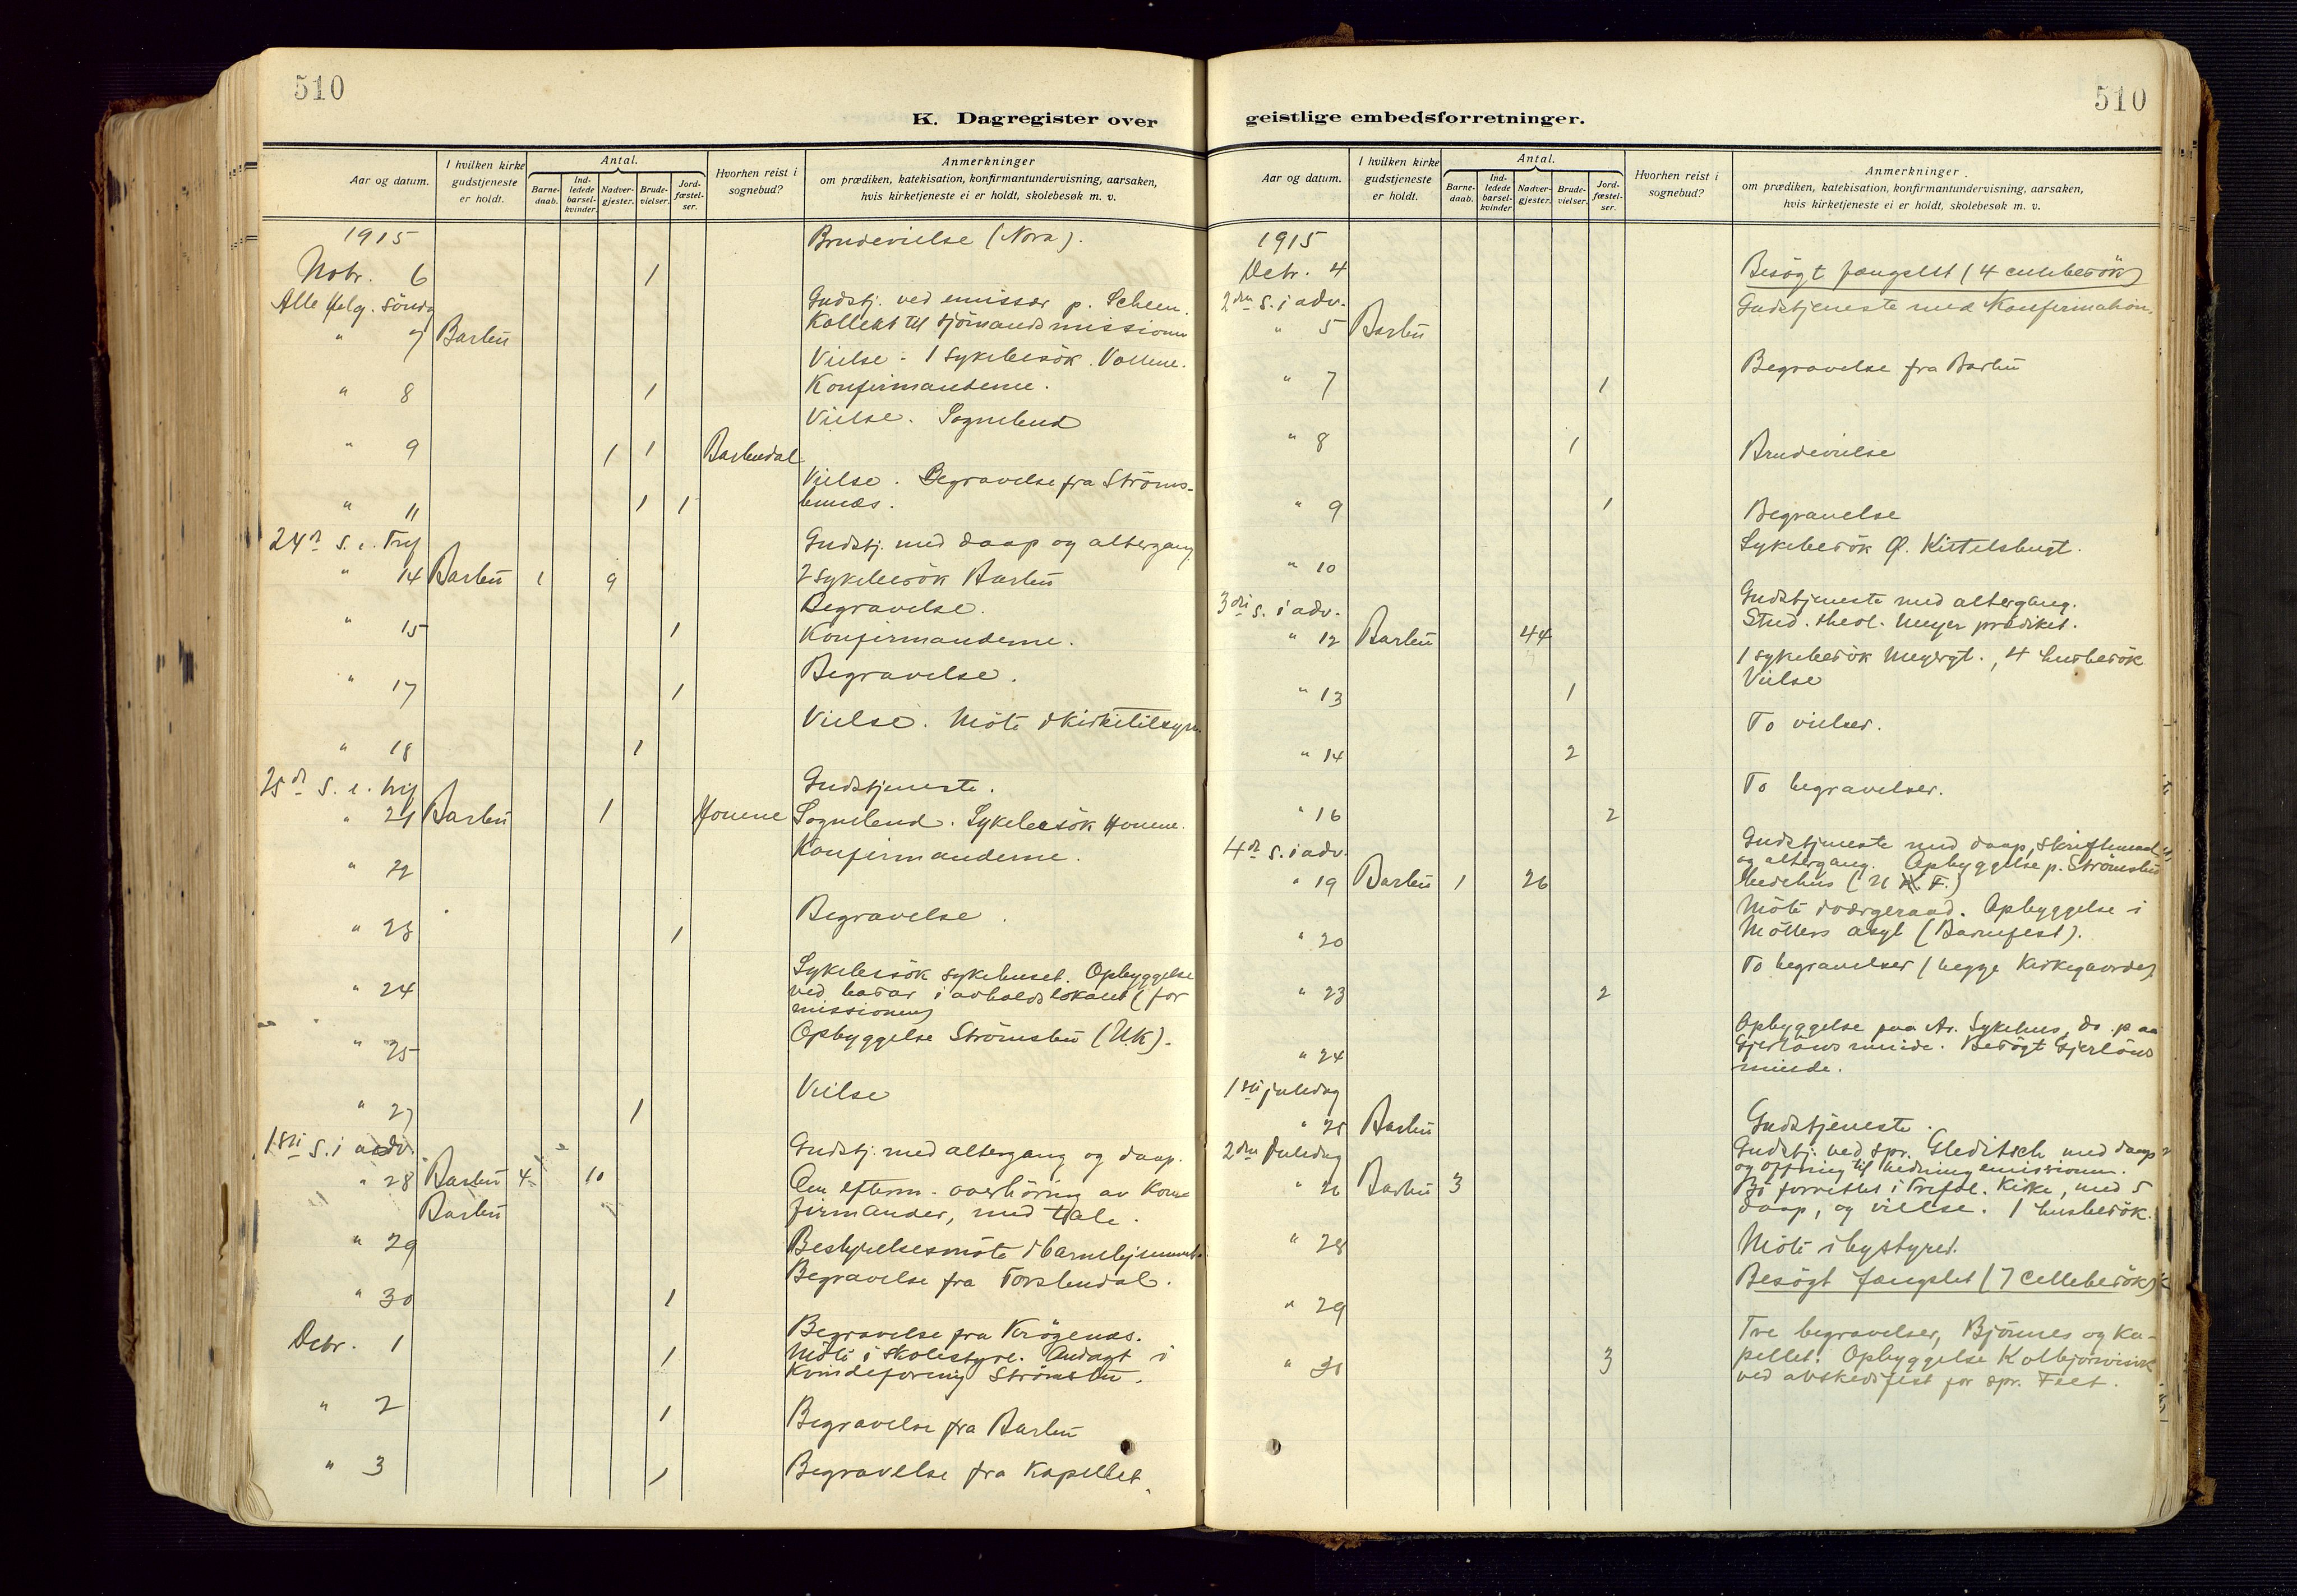 510
K. Dagregister over
Aar og datum.
I hvilken kirke gudstjeneste er holdt.
Antal.
Barne-daab.
Ind-ledede barsel-kvinder.
Nadver-gjester.
Brude-vielser.
Jord-fæstel-ser.
Hvorhen reist i sognebud?
Anmerkninger
om prædiken, katekisation, konfirmantundervisning, aarsaken,
hvis kirketjeneste ei er holdt, skolebesøk m. v.
1915
Brudevielse (Nora).
Nobr. 6 1
Alle Helg. Sönda
Gudstj. ved emissær p. Scheen.
Kollekt til Sjömandsmissionen
" 7 Barbu
Vielse. 1 Sykebesök. Vollene.
" 8 1 Konfirmanderne.
Vielse. Sognebud
" 9 1 1 Barbudal
Vielse. Begravelse fra Ströms-
" 11 1 1 bunæs.
24de S. e. Tref
Gudstj. med daap og altergang
" 14 Barbu 1 9 2 Sykebesök Barbu
Begravelse.
" 15 1 Konfirmanderne.
Begravelse.
" 17 1
Vielse. Möte i Kirketilsyn.
" 18 1
25de S. e. tref
Gudstjeneste.
" 21 Barbu 1 Houene Sognebud. Sykebesök Houene.
Konfirmanderne.
" 22
Begravelse.
" 23 1
Sykebesök sykehuset. Opbyggelse
" 24 ved basar i avholdslokalet (for
missionen)
Opbyggelse Strömsbu (U.K).
" 25
Vielse
" 27 1
1ste S. i adv.
Gudstj. med altergang og daap.
" 28 Barbu 4 10 Om efterm. overhöring av Kon-
Barbu firmander, med tale.
" 29 Bestyrelsesmöte i barnehjemmet.
Begravelse fra Torsbudal.
" 30 1
Begravelse fra Krögenæs.
Debr. 1 1 Möte i Skolestyre. Andagt i
Kvindeforening Strömsbu.
" 2 1
Begravelse fra Barbu
" 3 1 Begravelse fra Kapellet.
510
geistlige embedsforretninger.
Aar og datum.
I hvilken kirke gudstjeneste er holdt.
Antal.
Barne-daab.
Ind-ledede barsel-kvinder
Nadver-gjester.
Brude-vielser.
Jord-fæstel-ser.
Hvorhen reist i sognebud?
Anmerkninger.
om prædiken, katekisation, konfirmantundervisning, aarsaken,
hvis kirketjeneste ei er holdt, skolebesøk m. v.
1915
Debr. 4 Besögt fængslet (4 cellebesök)
2den S. i adv. Gudstjeneste med Konfirmation.
" 5 Barbu
Begravelse fra Barbu
" 7 1
" 8 1 Brudevielse
" 9 1 Begravelse
Sykebesök Ø. Kittelsbugt.
" 10
3die S. i adv. Gudstjeneste med altergang.
Stud. theol. Meyer prædiket.
" 12 Barbu 44
1 sykebesök Meyergt., 4 husbesök
Vielse
" 13 1
To vielser.
" 14 2
To begravelser.
" 16 2
4de S. i adv. Gudstjeneste med daap, skriftemaal
og altergang. Opbyggelse p. Strömsbu
" 19 Barbu 1 26 bedehus (U K. F.)
Möte i værgeraad. Opbyggelse i
" 20 Möllers asyl (Barnefest).
To begravelser (begge Kirkegaarde)
" 23 2
Opbyggelse paa Ar. Sykehus, do. paa
" 24 Gjerlöws minde. Besögt Gjerlöws
minde.
1ste juledag
" 25 Barbu Gudstjeneste.
2den Juledag Gudstj. ved spr. Gleditsch med daap
og offring til hedningemissionen.
" 26 Barbu 3 forrettet i Trefol. Kirke, med 5
daap, og vielse. 1 husbesök.
" 28 Möte i bystyret.
Besögt fængslet (7 cellebesök)
" 29
Tre begravelser, Björnes og Ka-
" 30 3 pellet. Opbyggelse Kolbjornsvik
ved avskedsfest for spr. Feet.